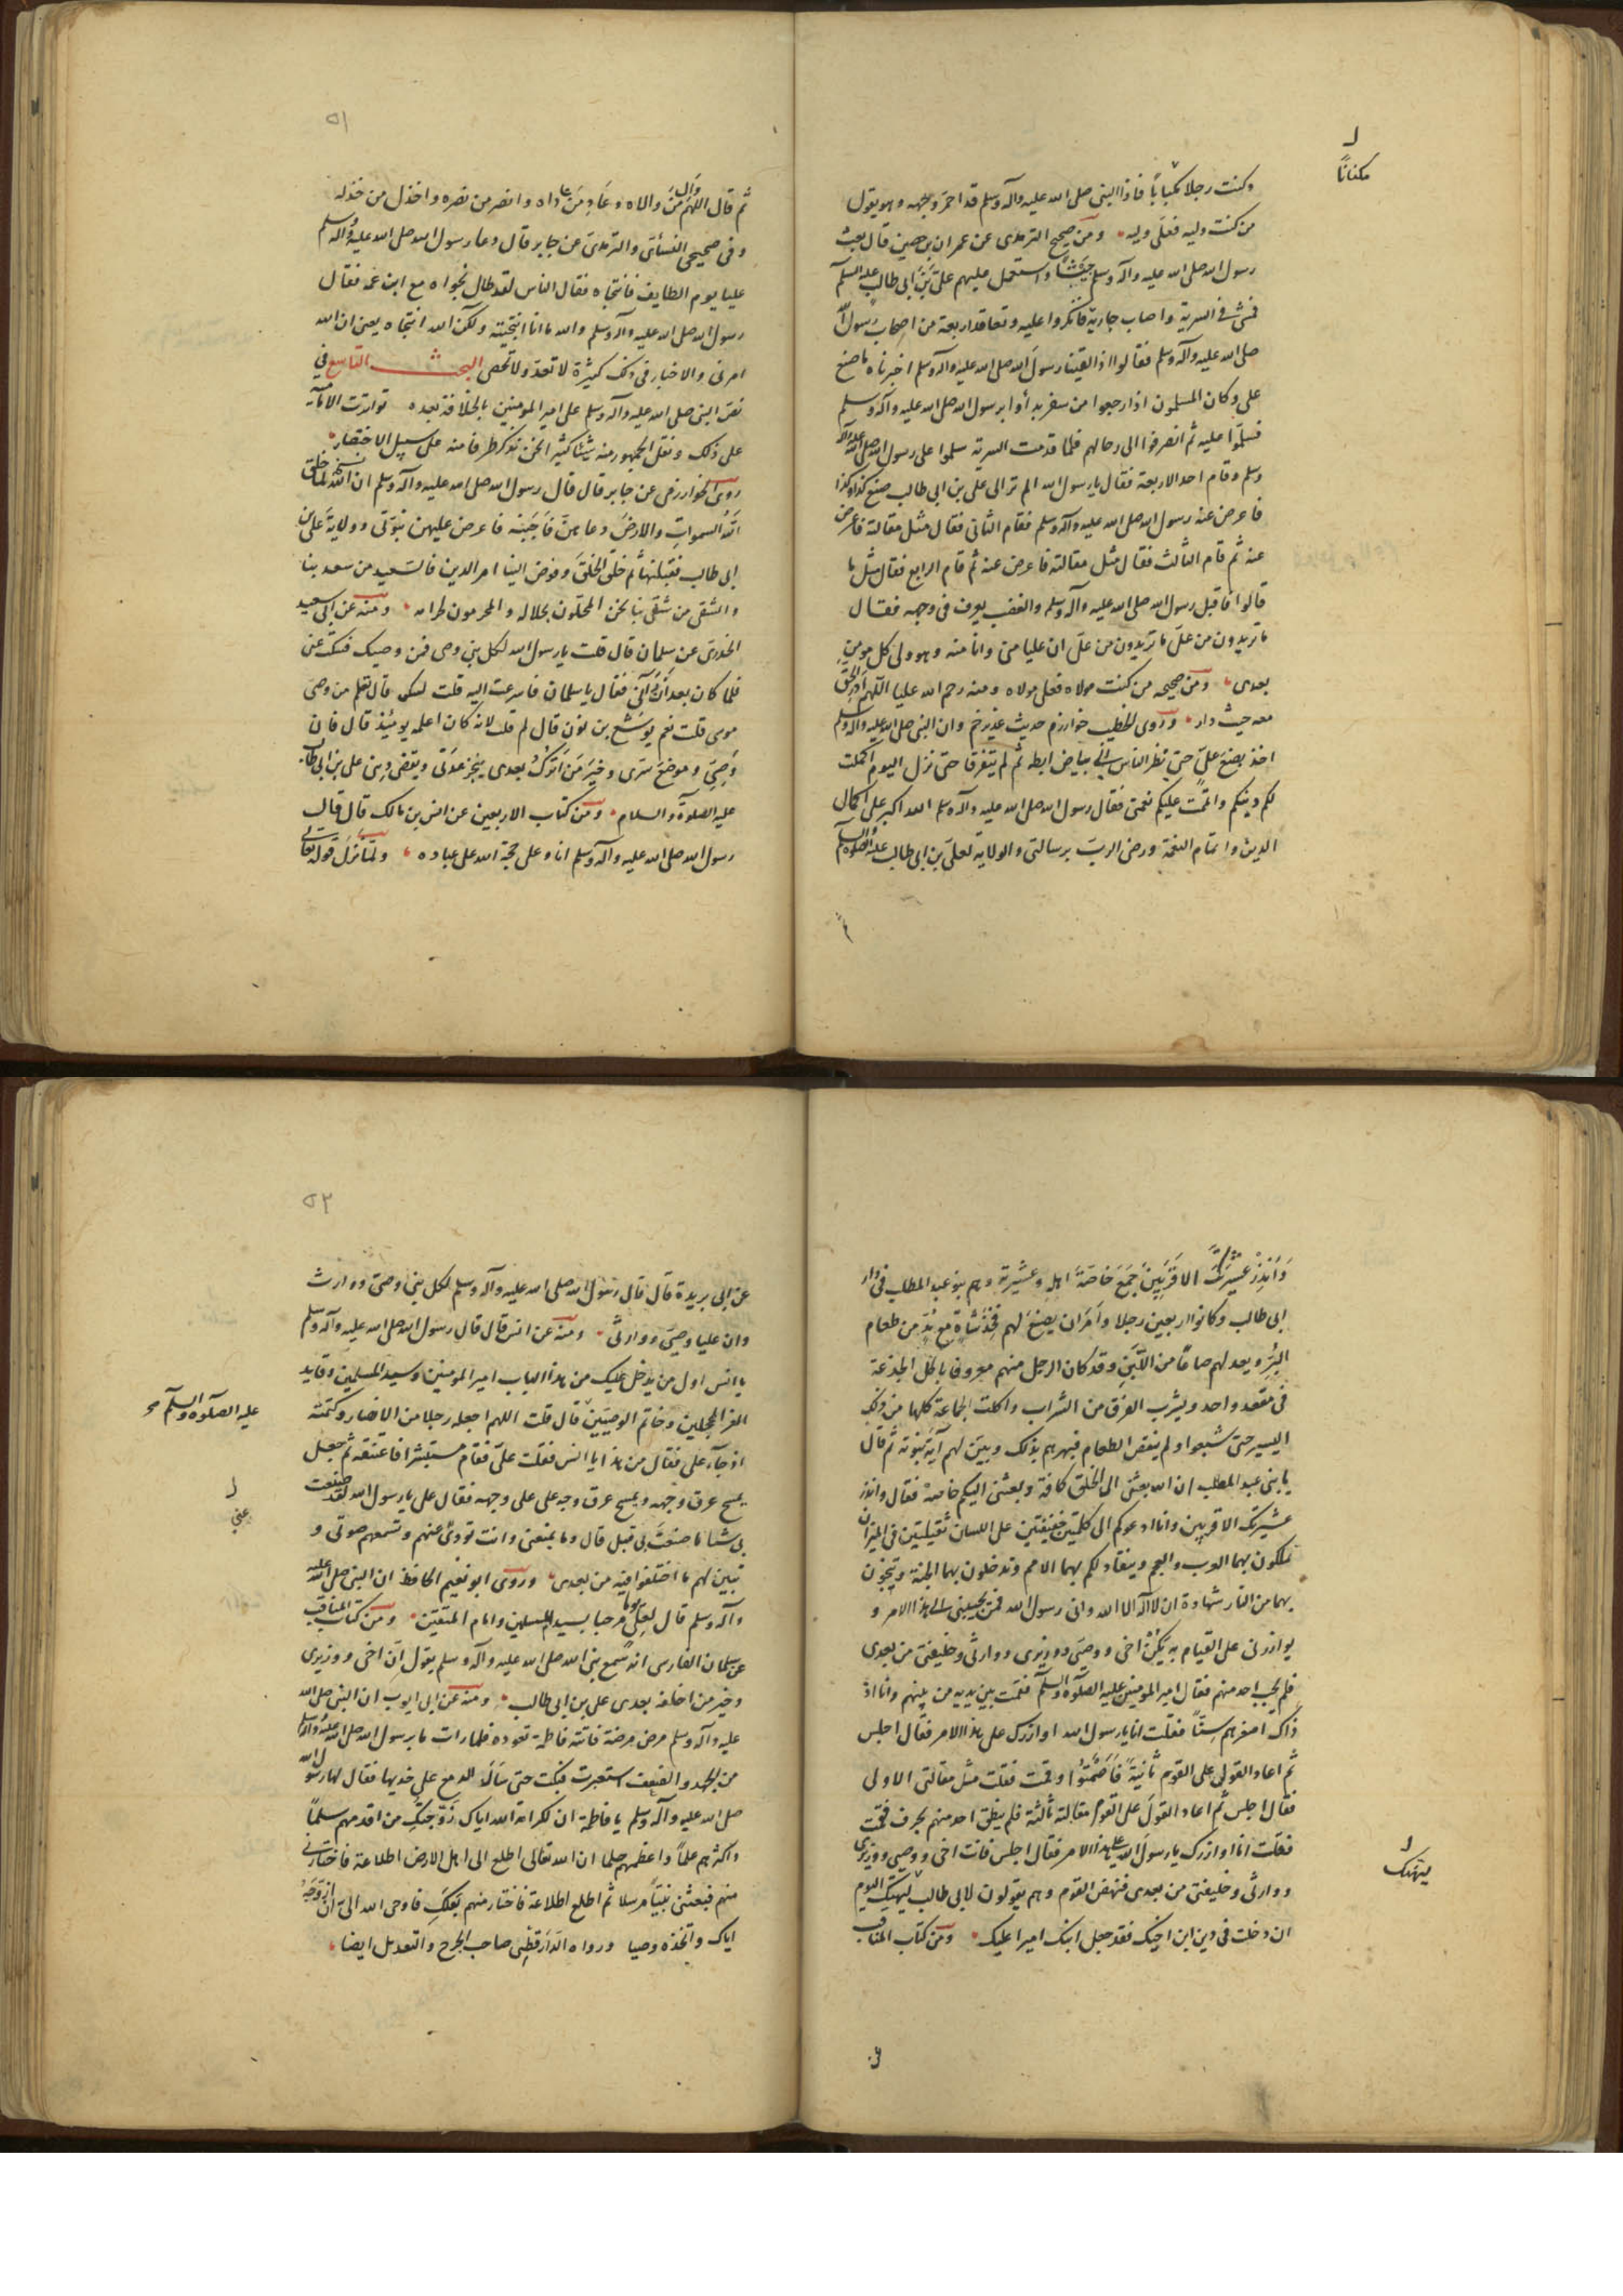 وكنت رجلا مكبابا فاذا النبى صلى الله عليه وآله وسلم قد احمر وجهه وهو يقول
مكنانا
من كنت وليه فعلى وليه ومن صحيح الترمذى عن عمران بن حصين قال بعث
رسول الله صلى الله عليه وآله وسلم جيشا واستعمل عليهم على بن ابى طالب عليه السلم
فمشى فى السرية واصاب جارية فانكروا عليه وتعاقد اربعة من اصحاب رسول الله
صلى الله عليه وآله وسلم فقالوا اذا لقينا رسول الله صلى الله عليه وآله وسلم اخبرناه بما صنع
على وكان المسلمون اذا رجعوا من سفر بدأوا برسول الله صلى الله عليه وآله وسلم
فسلموا عليه ثم انصرفوا الى رحالهم فلما قدمت السرية سلموا على رسول الله صلى الله عليه وآله
وسلم وقام احد الاربعة فقال يا رسول الله الم تر الى على بن ابى طالب صنع كذا وكذا
فاعرض عنه رسول الله صلى الله عليه وآله وسلم فقام الثانى فقال مثل مقالته فاعرض
عنه ثم قام الثالث فقال مثل مقالته فاعرض عنه ثم قام الرابع فقال مثل ما
قالوا فاقبل رسول الله صلى الله عليه وآله وسلم والغضب يعرف فى وجهه فقال
ما تريدون من على ما تريدون من على ان عليا منى وانا منه وهو ولى كل مومن
بعدى ومن صحيحه من كنت مولاه فعلى مولاه ومنه رحم الله عليا اللهم ادر الحق
معه حيث دار وروى الخطيب خوارزم حديث غدير خم وان النبى صلى الله عليه وآله وسلم
اخذ بضبع على حتى نظر الناس الى بياض ابطه ثم لم يتفرقا حتى نزل اليوم اكملت
لكم دينكم واتممت عليكم نعمتى فقال رسول الله صلى الله عليه وآله وسلم الله اكبر على اكمال
الدين واتمام النعمة ورضى الرب برسالتى والولاية لعلى بن ابى طالب عليه الصلوة والسلم
ثم
٥١
ثم قال اللهم وال من والاه وعاد من عاداه وانصر من نصره واخذل من خذله
وفى صحيحى النسائى والترمذى عن جابر قال دعا رسول الله صلى الله عليه وآله وسلم
عليا يوم الطايف فانتجاه فقال الناس لقد طال نجواه مع ابن عمه فقال
رسول الله صلى الله عليه وآله وسلم والله ما انا انتجيته ولكن الله انتجاه يعنى ان الله
امرنى والاخبار فى ذلك كثيرة لا تعد ولا تحصى البحث التاسع فى
نص النبى صلى الله عليه وآله وسلم على امير المومنين بالخلافة بعده تواترت الامامية
على ذلك ونقل الجمهور منه شيئا كثيرا نحن نذكر طرفا منه على سبيل الاختصار
روى الخوارزمى عن جابر قال قال رسول الله صلى الله عليه وآله وسلم ان الله لما خلق
الله السموات والارض دعاهن فاجبنه فاعرض عليهن نبوتى وولاية على بن
ابى طالب فقبلتها ثم خلق الخلق وفوض الينا امر الدين فالسعيد من سعد بنا
والشقى من شقى بنا نحن المحلون بحلاله والمحرمون لحرامه ومنه عن ابى سعيد
الخدرى عن سلمان قال قلت يا رسول الله لكل بنى وصى فمن وصيك فسكت عنى
فلما كان بعد ان رآنى فقال يا سلمان فاسرعت اليه قلت لبيك قال تعلم من وصى
موسى قلت نعم يوشع بن نون قال لم قلت لانه كان اعلمهم يومئذ قال فان
وصيى وموضع سرى وخير من اترك بعدى ينجز عدتى ويقضى دينى على بن ابى طالب
عليه الصلوة والسلام ومن كتاب الاربعين عن انس بن مالك قال قال
رسول الله صلى الله عليه وآله وسلم انا وعلى حجة الله على عباده ولما نزل قوله تعالى
وانذر عشيرتك الاقربين جمع خاصة اهله وعشيرته وهم بنو عبد المطلب فى دار
ابى طالب وكانوا اربعين رجلا وامر ان يصنع لهم فخذ شاة مع مد من طعام
البر ويعد لهم صاعا من اللبن وقد كان الرجل منهم معروفا باكل الجذعة
فى مقعد واحد ويشرب الفرق من الشراب واكلت الجماعة كلها من ذلك
اليسير حتى شبعوا ولم ينقص الطعام فبهرهم بذلك وبين لهم آية نبوته ثم قال
يا بنى عبد المطلب ان الله بعثنى الى الخلق كافة وبعثنى اليكم خاصة فقال وانذر
عشيرتك الاقربين وانا ادعوكم الى كلمتين خفيفتين على اللسان ثقيلتين فى الميزان
تملكون بهما العرب والعجم وينقاد لكم بهما الامم وتدخلون بهما الجنة وتنجون
بهما من النار شهادة ان لا اله الا الله وانى رسول الله فمن يجيبنى الى هذا الامر و
يوازرنى على القيام به يكن اخى ووصيى ووزيرى ووارثى وخليفتى من بعدى
فلم يجب احد منهم فقال امير المومنين عليه الصلوة والسلم فقمت بين يديه من بينهم وانا اذ
ذاك اصغرهم سنا فقلت انا يا رسول الله اوازرك على هذا الامر فقال اجلس
ثم اعاد القول على القوم ثانية فاصمتوا وقمت فقلت مثل مقالتى الاولى
فقال اجلس ثم اعاد القول على القوم مقالة ثالثة فلم ينطق احد منهم بحرف فقمت
فقلت انا اوازرك يا رسول الله على هذا الامر فقال اجلس فانت اخى ووصيى ووزيرى
ووارثى وخليفتى من بعدى فنهض القوم وهم يقولون لابى طالب ليهنيك اليوم
ليهنك
ان دخلت فى دين ابن اخيك فقد جعل ابنك اميرا عليك ومن كتاب المناقب
٥٢
عن ابى بريدة قال قال رسول الله صلى الله عليه وآله وسلم لكل نبى وصى ووارث
وان عليا وصيى ووارثى ومنه عن انس قال قال رسول الله صلى الله عليه وآله وسلم
يا انس اول من يدخل عليك من هذا الباب امير المومنين وسيد المسلمين وقايد
الغر المحجلين وخاتم الوصيين قال قلت اللهم اجعله رجلا من الانصار وكتمته
عليه الصلوة والسلم
اذ جآء على فقال من هذا يا انس فقلت على فقام مستبشرا فاعتنقه ثم جعل
يمسح عرق وجهه ويمسح عرق وجه على على وجهه فقال على يا رسول الله لقد صنعت
بى شيئا ما صنعت بى قبل قال وما يمنعنى وانت تودى عنهم وتسمعهم صوتى و
عنى
تبين لهم ما اختلفوا فيه من بعدى وروى ابو نعيم الحافظ ان النبى صلى الله عليه
وآله وسلم قال لعلى يوما مرحبا بسيد المسلمين وامام المتقين ومن كتاب المناقب
عن سلمان الفارسى انه سمع نبى الله صلى الله عليه وآله وسلم يقول ان اخى ووزيرى
وخير من اخلفه بعدى على بن ابى طالب ومنه عن ابى ايوب ان النبى صلى الله
عليه وآله وسلم مرض مرضة فاتته فاطمة تعوده فلما رات ما برسول الله صلى الله عليه وآله وسلم
من الجهد والضعف استعبرت فبكت حتى سال الدمع على خديها فقال لها رسول الله
صلى الله عليه وآله وسلم يا فاطمة ان لكرامة الله اياك زوجتك من اقدمهم سلما
واكثرهم علما واعظمهم حلما ان الله تعالى اطلع الى اهل الارض اطلاعة فاختارنى
منهم فبعثنى نبيا مرسلا ثم اطلع اطلاعة فاختار منهم بعلك فاوحى الله الى ان ازوجه
اياك واتخذه وصيا ورواه الدارقطنى صاحب الجرح والتعديل ايضا